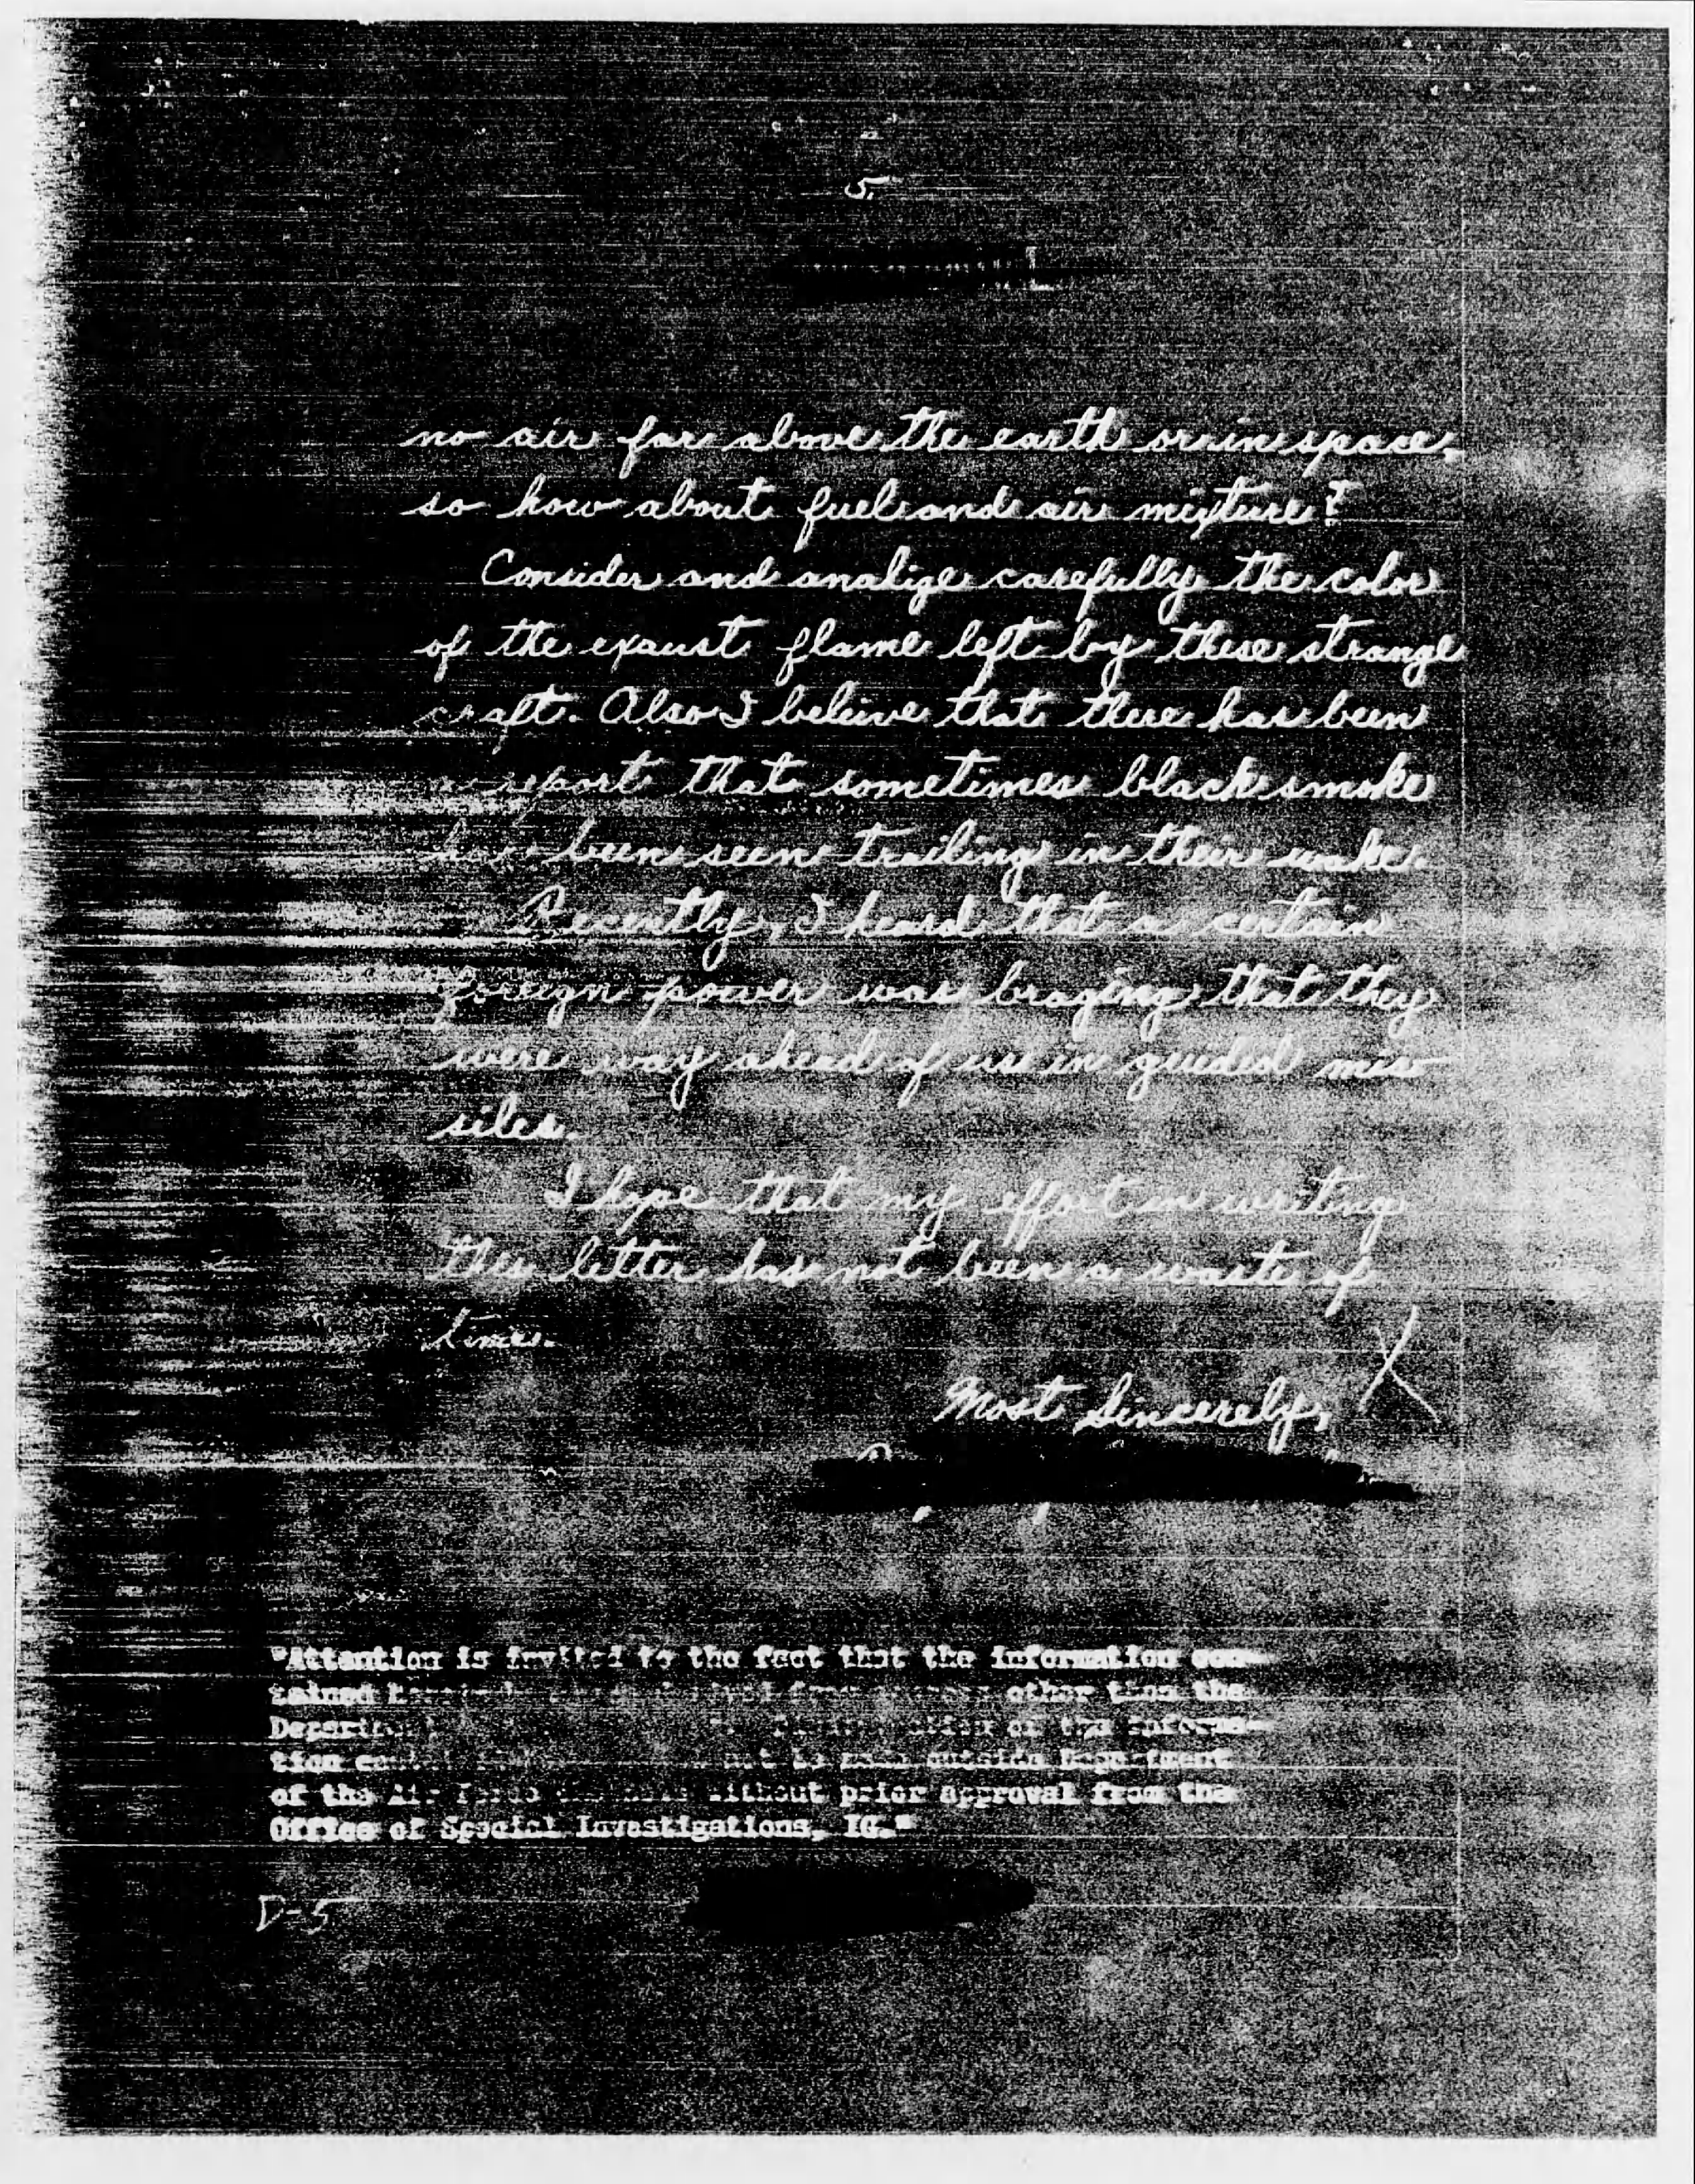 5.
no air far above the earth or in space,
so how about fuel and air mixture?
Consider and analize carefully the color
of the exaust flame left by these strange
craft. Also I beleive that there has been
a report that sometimes black smoke
has been seen trailing in their wake.
Recently, I heard that a certain
foreign power was braging that they
were way ahead of us in guided mis-
siles.
I hope that my effort in writing
this letter has not been a waste of
time.
X
Most Sincerely,
"Attention is invited to the fact that the information con-
tained other than the
of the informa-
tion outside Department
of the Air Force without prior approval from the
Office of Special Investigations, IG."
D-5